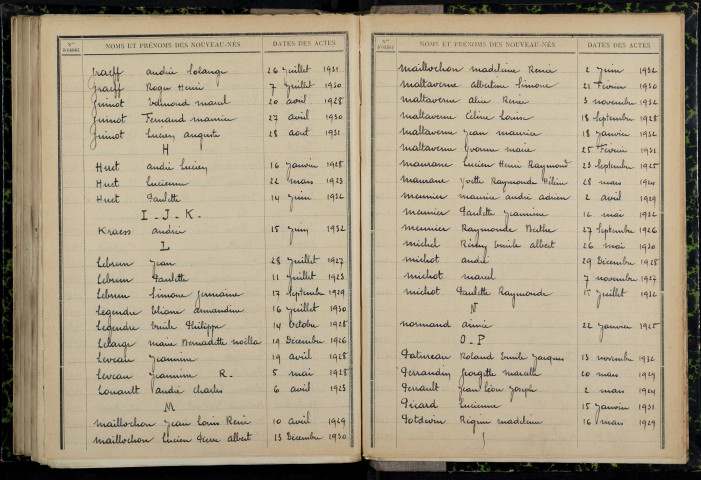 Nos D'ORDRE NOMS ET PRÉNOMS DES NOUVEAU-NÉS DATES DES ACTES
Graeff andrée Solange 26 Juillet 1931
Graeff Roger Henri 7 Juillet 1930
Guinot Edmond marcel 20 avril 1928
Guinot Fernand maurice 27 avril 1930
Guinot Lucien auguste 28 aout 1931
H
Huet andré Lucien 16 Janvier 1928
Huet Lucienne 22 mars 1923
Huet Paulette 14 Juin 1932
I - J - K -
Kraess andrée 15 Juin 1932
L
Lebrun Jean 28 Juillet 1927
Lebrun Paulette 11 Juillet 1923
Lebrun Simone germaine 17 Septembre 1929
Legendre Eliane armandine 16 Juillet 1930
Legendre Emile Philippe 14 octobre 1928
Lelarge marie Bernadette noëlla 19 Décembre 1926
Leveau Jeannine 29 avril 1928
Leveau Jeannine R. 5 mai 1928
Louault andré charles 6 avril 1923
M
Maillochon Jean Louis René 10 avril 1929
Maillochon Lucien Pierre albert 13 Décembre 1930
Nos D'ORDRE NOMS ET PRÉNOMS DES NOUVEAU-NÉS DATES DES ACTES
Maillochon madeleine Renée 2 Juin 1932
Maltaverne albertine Simone 21 Fevrier 1930
Maltaverne alice Renée 3 novembre 1932
Maltaverne Céline Louise 18 Septembre 1928
Maltaverne Jean maurice 18 Janvier 1932
Maltaverne Yvonne marie 25 Février 1931
Maurane Lucien Henri Raymond 23 Septembre 1925
Maurane Yvette Raymonde 28 mars 1924
Meunier maurice andré adrien 2 avril 1929
Meunier Paulette Jeannine 12 mai 1932
Meunier Raymonde Berthe 27 Septembre 1926
Michel Rémy Emile albert 26 mai 1930
Michot andré 29 Décembre 1928
Michot marcel 7 novembre 1927
Michot Paulette Raymonde Juillet 1932
N
Normand aimée 22 Janvier 1925
O - P
Patureau Roland Emile Jacques 13 novembre 1932
Perraudin georgette marcelle 20 mars 1929
Perrault Jean Léon Joseph 2 mai 1924
Picard Lucienne 15 Janvier 1931
Potdevin Régine madeleine 16 mars 1929